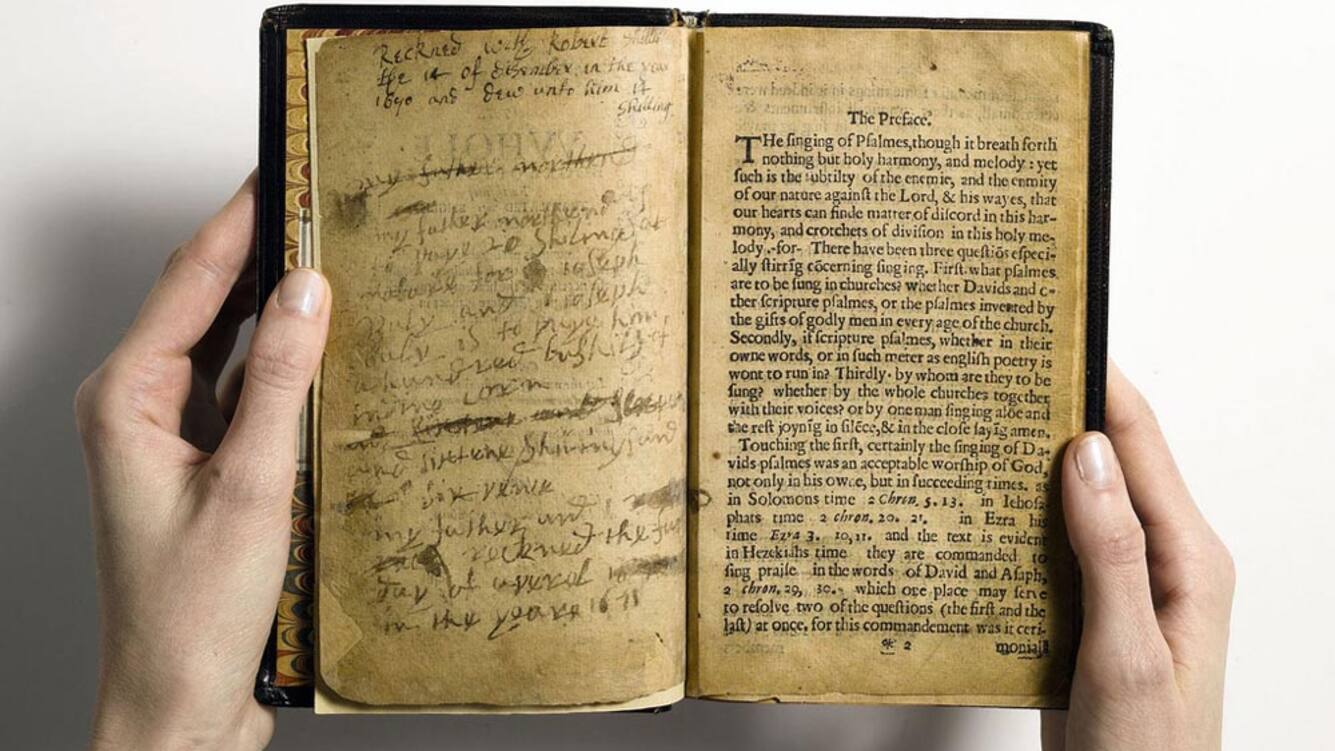 Reckned with Robert
the 14 of desember in the year
1690 and dew unto him 14
shilling
my father
my father
to paye 20 Shilings at
Joseph
and Joseph
is to paye him
a hundred bushils of
indne corn
and
and sixtene Shillings and
six pence
my father and I
reckned the
day of aperel
in the yeare 1671
The Preface.
THe ſinging of Pſalmes, though it breath forth
nothing but holy harmony, and melody: yet
ſuch is the ſubtilty of the enemie, and the enmity
of our nature againſt the Lord, & his wayes, that
our hearts can finde matter of diſcord in this har-
mony, and crotchets of diviſion in this holy me-
lody.-for- There have been three queſtiōs eſpeci-
ally ſtirrīg cōcerning ſinging. Firſt. what pſalmes
are to be ſung in churches? whether Davids and o-
ther ſcripture pſalmes, or the pſalmes invented by
the gifts of godly men in every age of the church.
Secondly, if ſcripture pſalmes, whether in their
owne words, or in ſuch meter as english poetry is
wont to run in? Thirdly. by whom are they to be
ſung? whether by the whole churches together
with their voices? or by one man ſinging alōe and
the reſt joynīg in ſilēce, & in the cloſe ſayīg amen.
Touching the firſt, certainly the ſinging of Da-
vids pſalmes was an acceptable worſhip of God,
not only in his owne, but in ſucceeding times. as
in Solomons time 2 Chron. 5. 13. in Iehoſa-
phats time 2 chron. 20. 21. in Ezra his
time Ezra 3. 10, 11. and the text is evident
in Hezekiahs time they are commanded to
ſing praiſe in the words of David and Aſaph,
2 chron. 29, 30. which one place may ſerve
to reſolve two of the queſtions (the firſt and the
laſt) at once. for this commandement was it ceri-
* 2 moniall